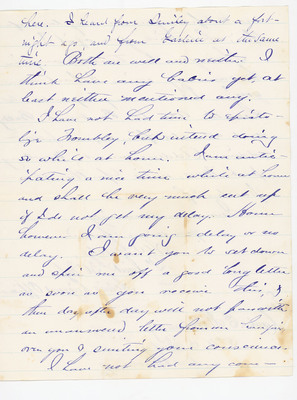 here. I heard from Smiley about a fort-
night ago, and from             at the same
time. Both are well and neither I
think have any babies yet, at
least neither mentioned any.
I have not had time to
               but intend doing
so while at home. I am antic-
ipating a nice time while at home
and shall be very much cut up
if I do not get my delay. Home
however I am going delay or no
delay. I want you to set down
and         me off a good long letter
as soon as you receive this,
       day after day will not pass with
an unanswered letter from me
over you &           your conscience.
I have not had any com-